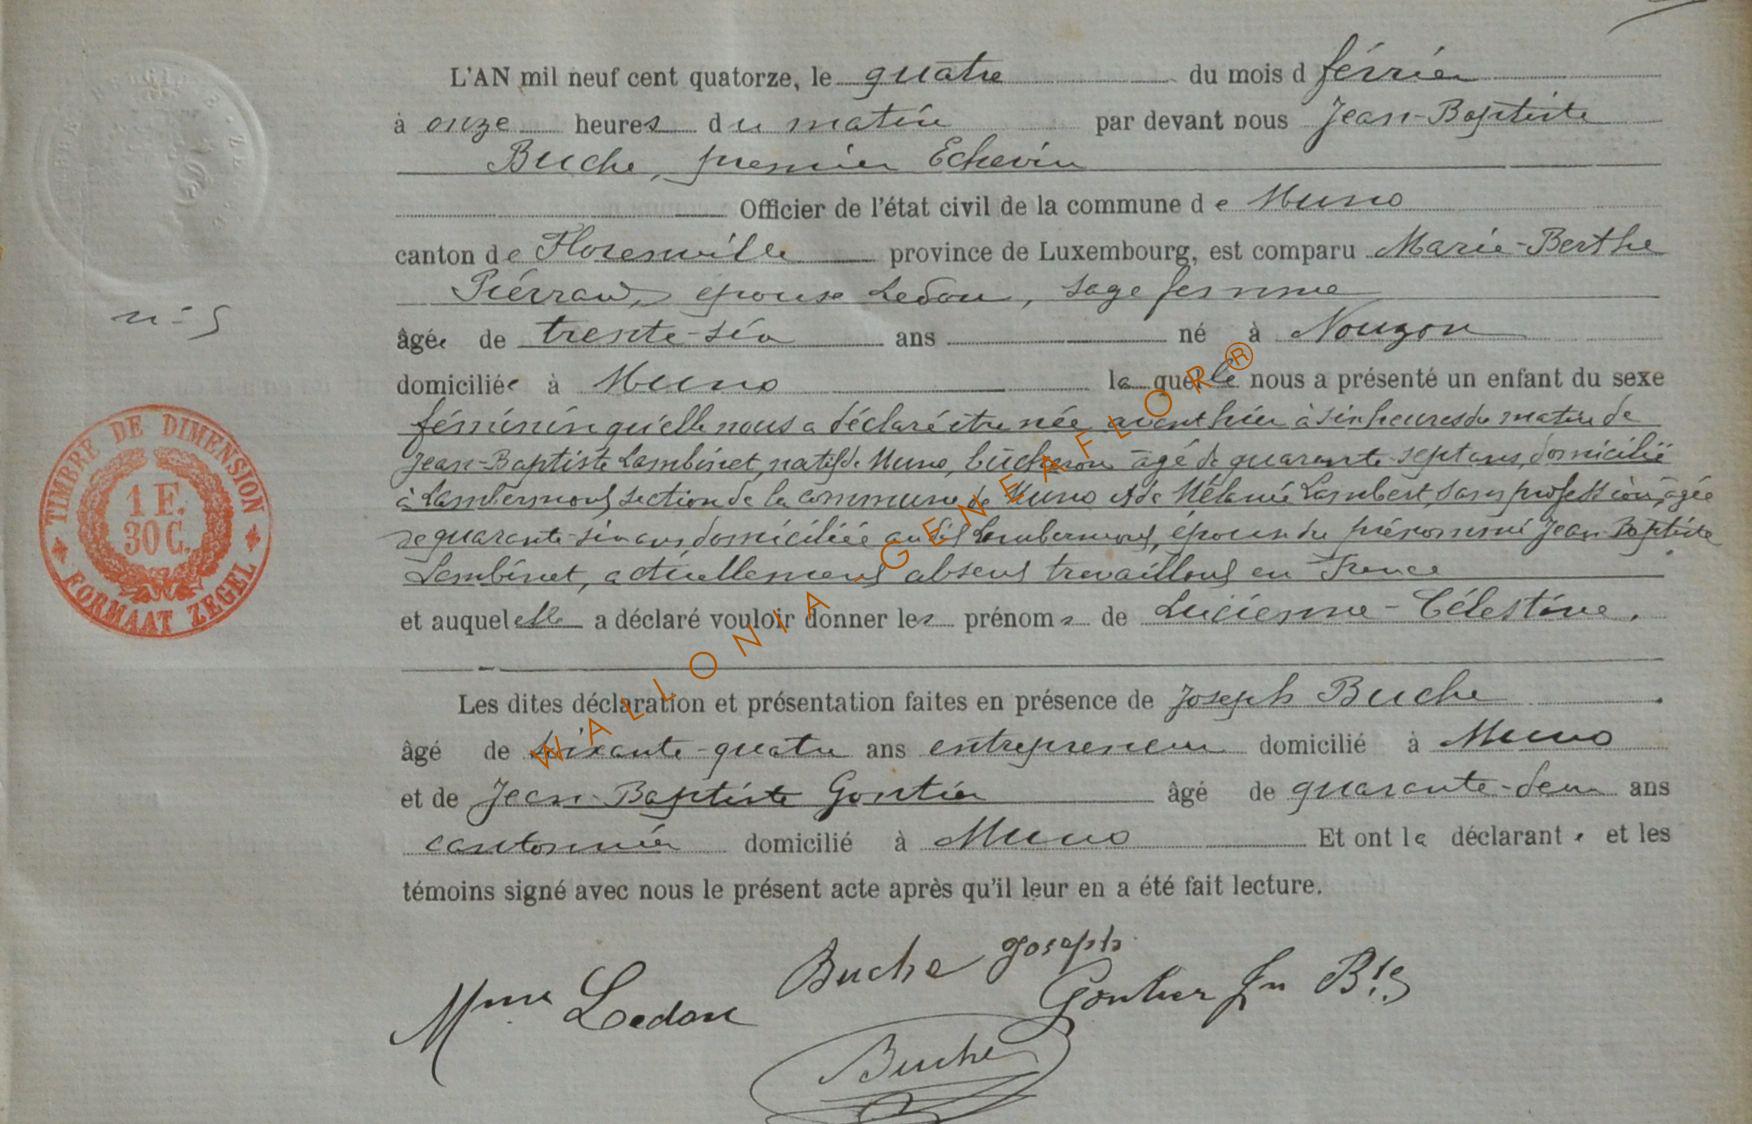 L'AN mil neuf cent quatorze, le quatre du mois d février
à onze heures du matin par devant nous Jean-Baptiste
Buche, premier Echevin
Officier de l'état civil de la commune de Muno
canton de Florenville province de Luxembourg, est comparu Marie-Berthe
Piérrard, épouse Ledon, sage femme
âgée de trente-six ans né à Nouzon
domiciliée à Muno laquelle nous a présenté un enfant du sexe
féminin qu'elle nous a déclaré être née avant hier à six heures du matin de
Jean-Baptiste Lambinet, natif de Muno, bûcheron âgé de quarante-sept ans, domicilié
à Lambermont section de la commune de Muno et de Mélanie Lambert, sans profession, âgée
de quarante-six ans, domiciliée audit Lambermont, épouse du prénommé Jean-Baptiste
Lambinet, actuellement absent travaillant en France
et auquel elle a déclaré vouloir donner les prénoms de Lucienne-Célestine.
Les dites déclaration et présentation faites en présence de Joseph Buche
âgé de soixante-quatre ans entrepreneur domicilié à Muno
et de Jean-Baptiste Gontier âgé de quarante-deux ans
cantonnier domicilié à Muno Et ont la déclarante et les
témoins signé avec nous le présent acte après qu'il leur en a été fait lecture.
n-5
TIMBRE DE DIMENSION
1 F.
30 C.
FORMAAT ZEGEL
Mme Ledon
Buche Joseph
Gontier Jn Bte
Buche
WALLONIA-GENEAFLOR®